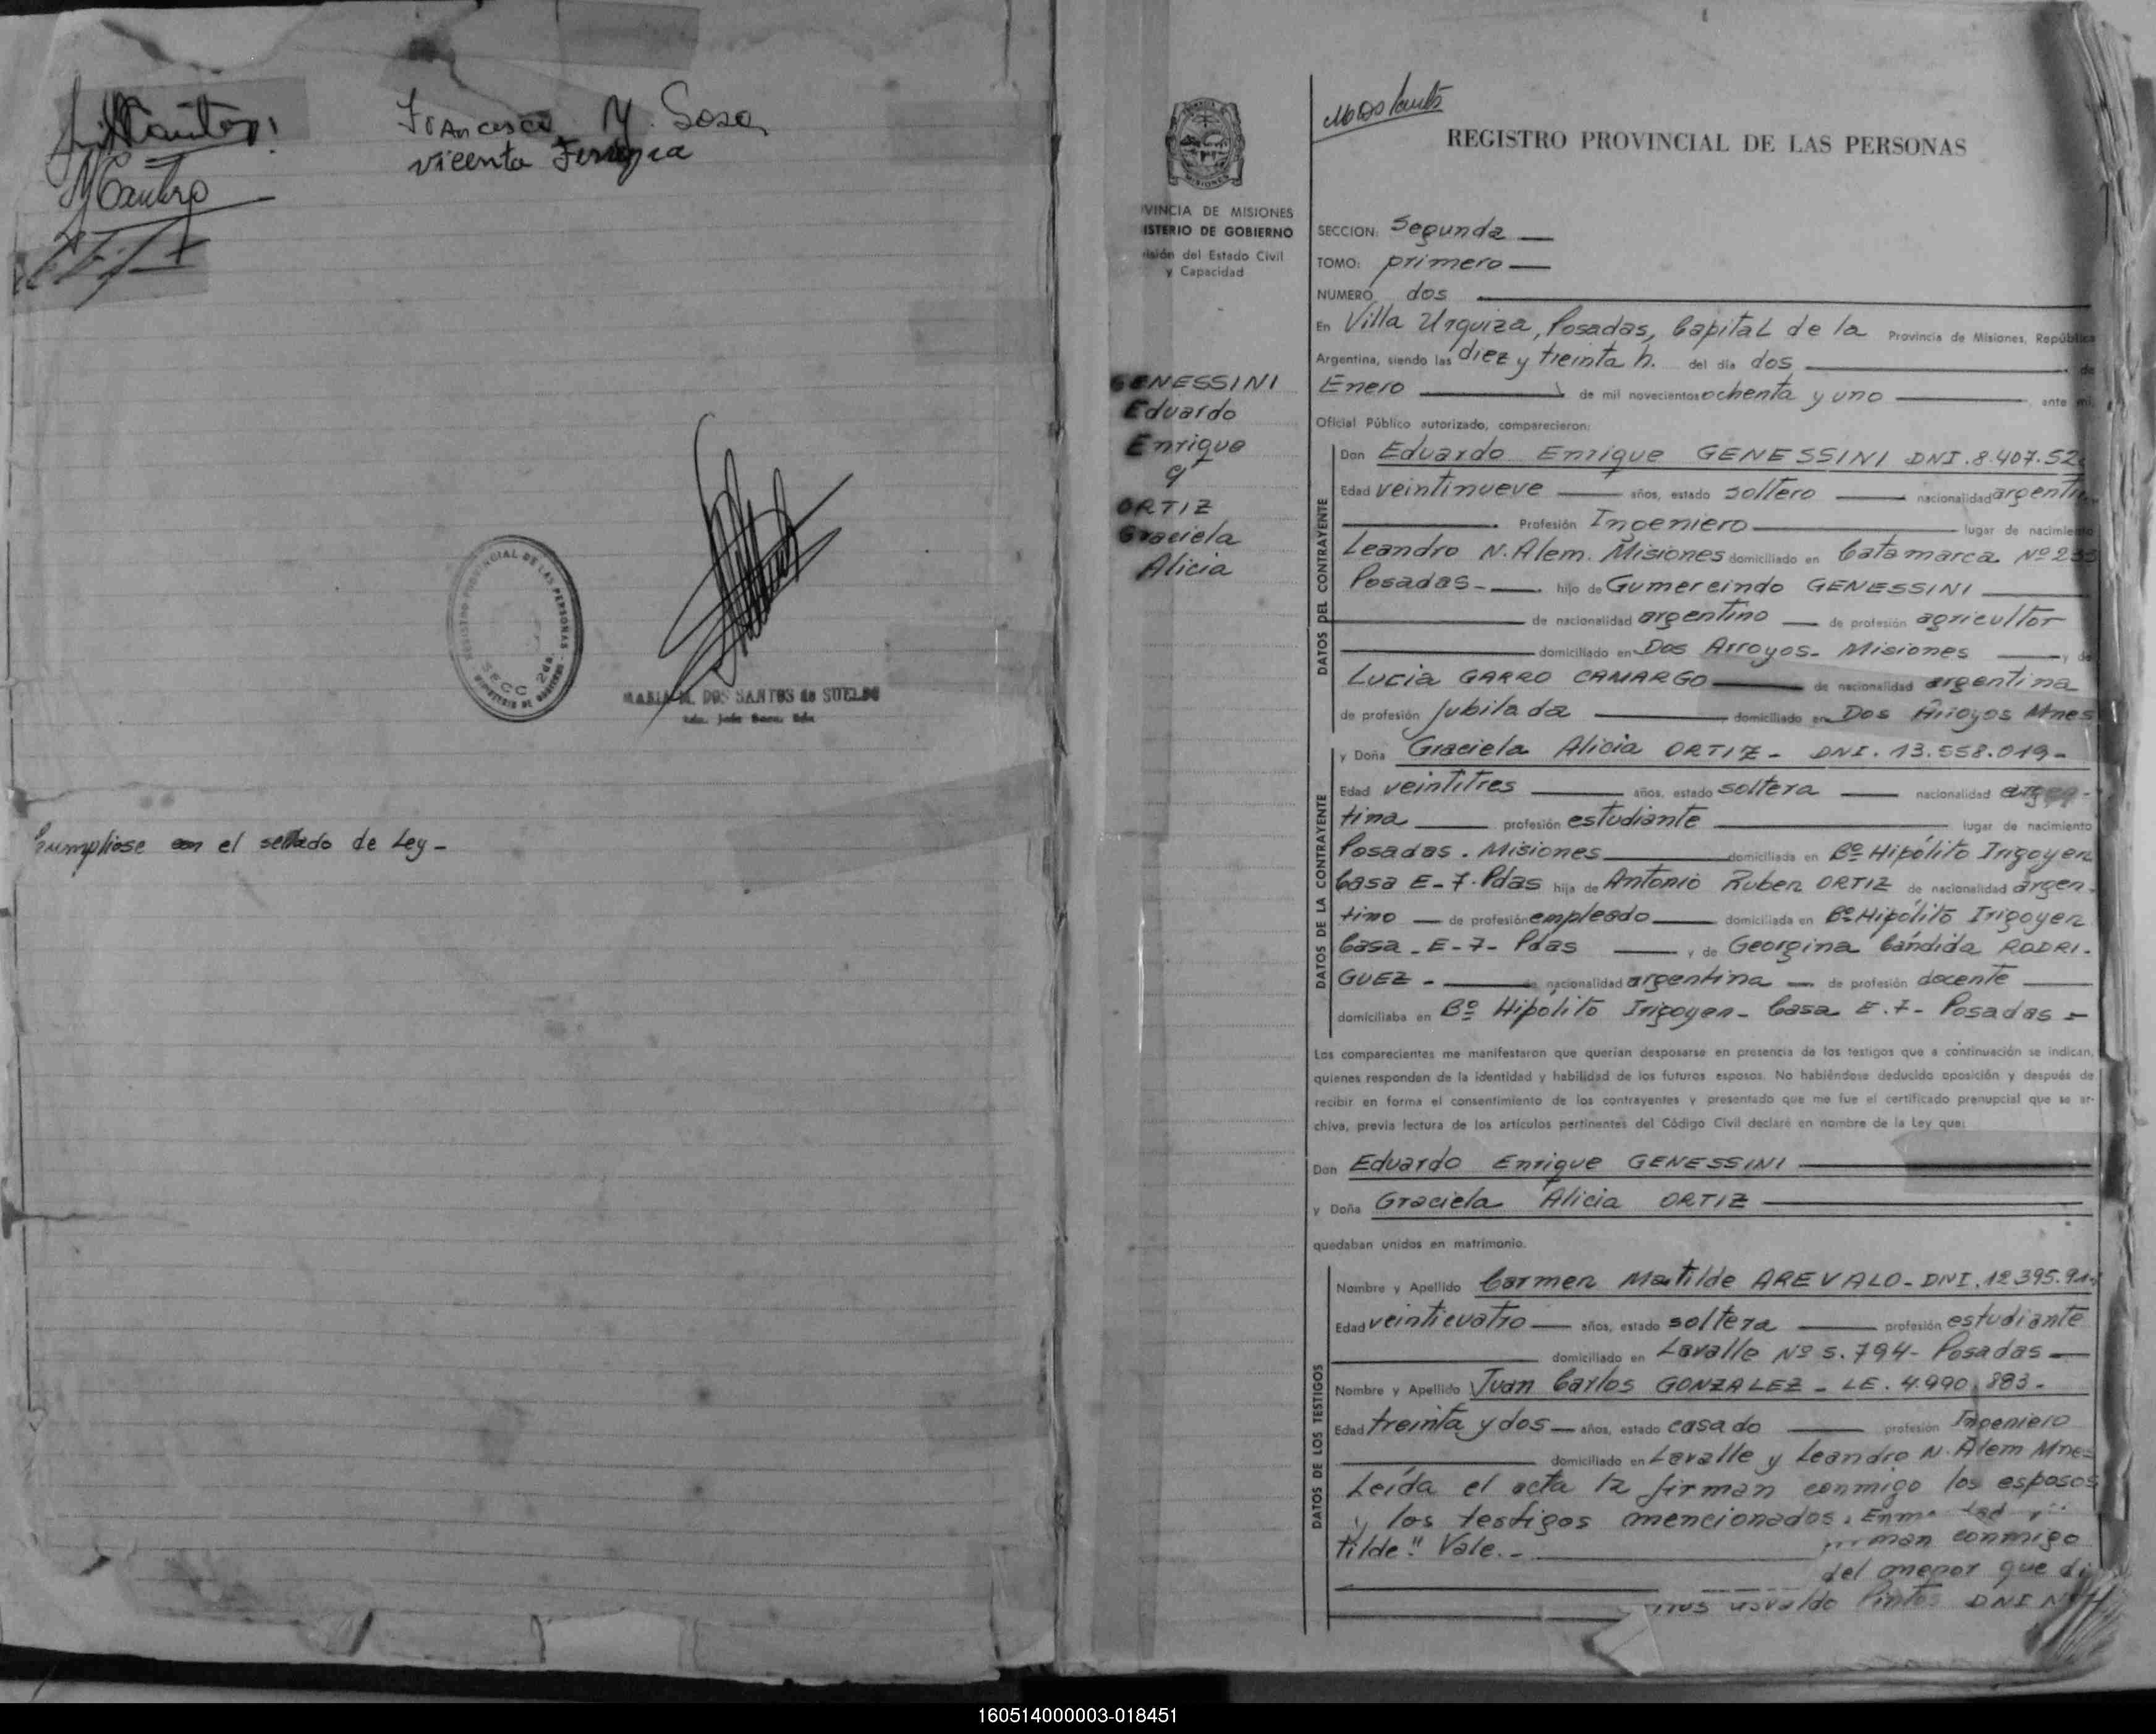 Francisca M. Sosa
Vicenta Ferreyra
REGISTRO PROVINCIAL DE LAS PERSONAS
SECC 2da.
MARIA M. DOS SANTOS de SUELDO
Cumpliose con el sellado de Ley -
MISIONES
VINCIA DE MISIONES
ISTERIO DE GOBIERNO
isión del Estado Civil
y Capacidad
GENESSINI
Eduardo
Enrique
y
ORTIZ
Graciela
Alicia
REGISTRO PROVINCIAL DE LAS PERSONAS
SECCION: Segunda
TOMO: primero
NUMERO dos
En Villa Urquiza, Posadas, Capital de la Provincia de Misiones, República
Argentina, siendo las diez y treinta h. del día dos de
Enero de mil novecientos ochenta y uno ante mí,
Oficial Público autorizado, comparecieron:
DATOS DEL CONTRAYENTE
Don Eduardo Enrique GENESSINI DNI. 8.407.52
Edad veintinueve años, estado soltero nacionalidad argenti
Profesión Ingeniero lugar de nacimiento
Leandro N. Alem. Misiones domiciliado en Catamarca Nº 233
Posadas- hijo de Gumercindo GENESSINI
de nacionalidad argentino de profesión agricultor
domiciliado en Dos Arroyos- Misiones y de
Lucia GARRO CAMARGO de nacionalidad argentina
de profesión jubilada domiciliado en Dos Arroyos Mnes
DATOS DE LA CONTRAYENTE
y Doña Graciela Alicia ORTIZ - DNI. 13.558.019-
Edad veintitres años, estado soltera nacionalidad argen-
tina profesión estudiante lugar de nacimiento
Posadas. Misiones domiciliada en Bº Hipólito Irigoyen
Casa E-7. Pdas hija de Antonio Ruben ORTIZ de nacionalidad argen-
tino de profesión empleado domiciliada en Bº Hipólito Irigoyen
Casa - E-7- Pdas y de Georgina Cándida RODRI-
GUEZ - de nacionalidad argentina de profesión docente
domiciliaba en Bº Hipólito Irigoyen- Casa E.7- Posadas -
Los comparecientes me manifestaron que querían desposarse en presencia de los testigos que a continuación se indican,
quienes responden de la identidad y habilidad de los futuros esposos. No habiéndose deducido oposición y después de
recibir en forma el consentimiento de los contrayentes y presentado que me fue el certificado prenupcial que se ar-
chiva, previa lectura de los artículos pertinentes del Código Civil declaré en nombre de la Ley que:
Don Eduardo Enrique GENESSINI
y Doña Graciela Alicia ORTIZ
quedaban unidos en matrimonio.
DATOS DE LOS TESTIGOS
Nombre y Apellido Carmen Matilde AREVALO- DNI. 12.395.91
Edad veinticuatro años, estado soltera profesión estudiante
domiciliado en Lavalle Nº 5.794- Posadas
Nombre y Apellido Juan Carlos GONZALEZ - LE. 4.990.883-
Edad treinta y dos años, estado casado profesión Ingeniero
domiciliado en Lavalle y Leandro N. Alem Mnes
Leída el acta la firman conmigo los esposos
y los testigos mencionados.
tilde" Vale.- man conmigo
del menor que di
Osvaldo Pintos DNI Nº
160514000003-018451